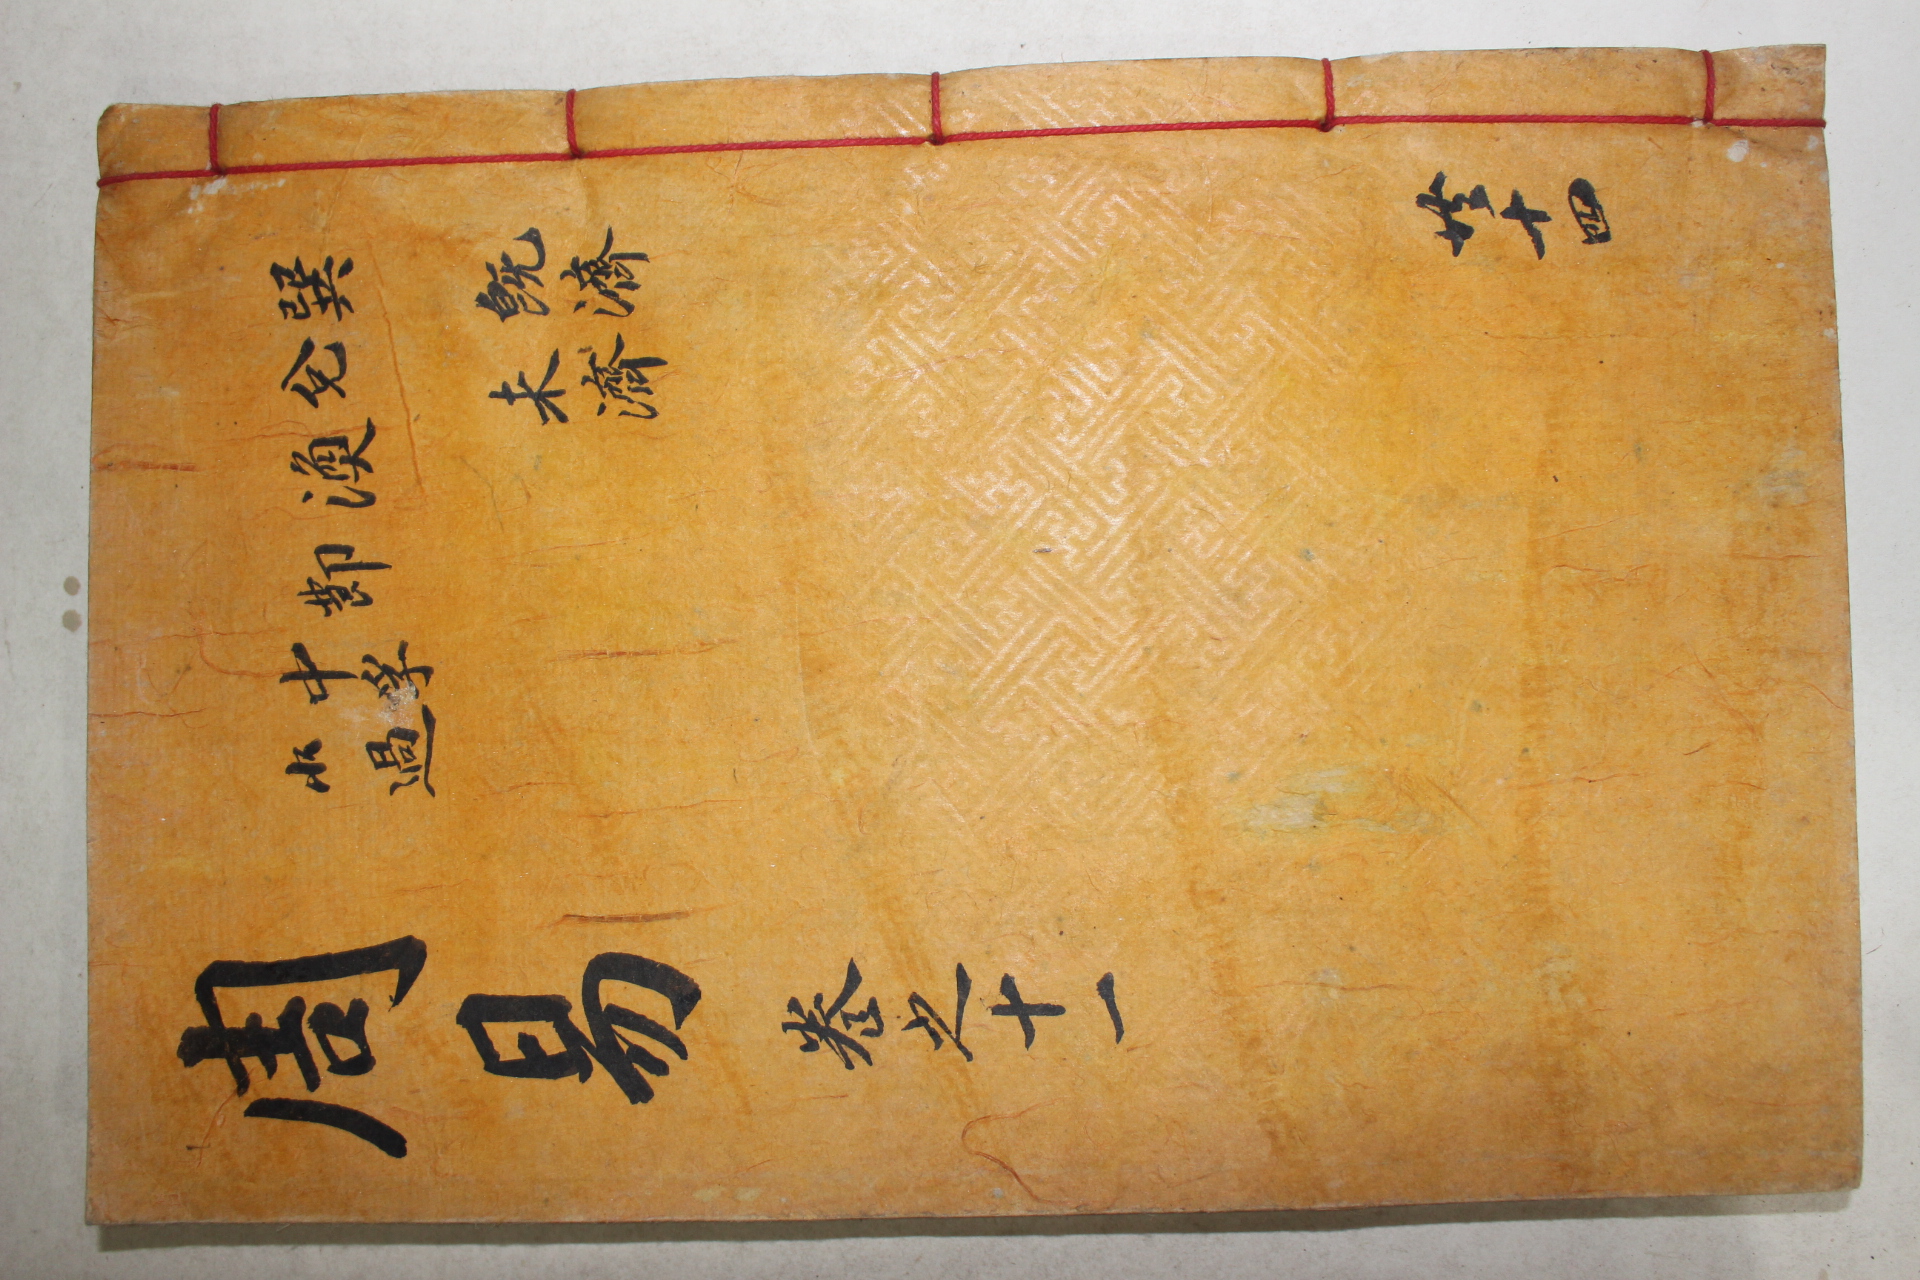 巽
兌
渙
節
中孚
小過
既濟
未濟
周易 卷之十一
共十四